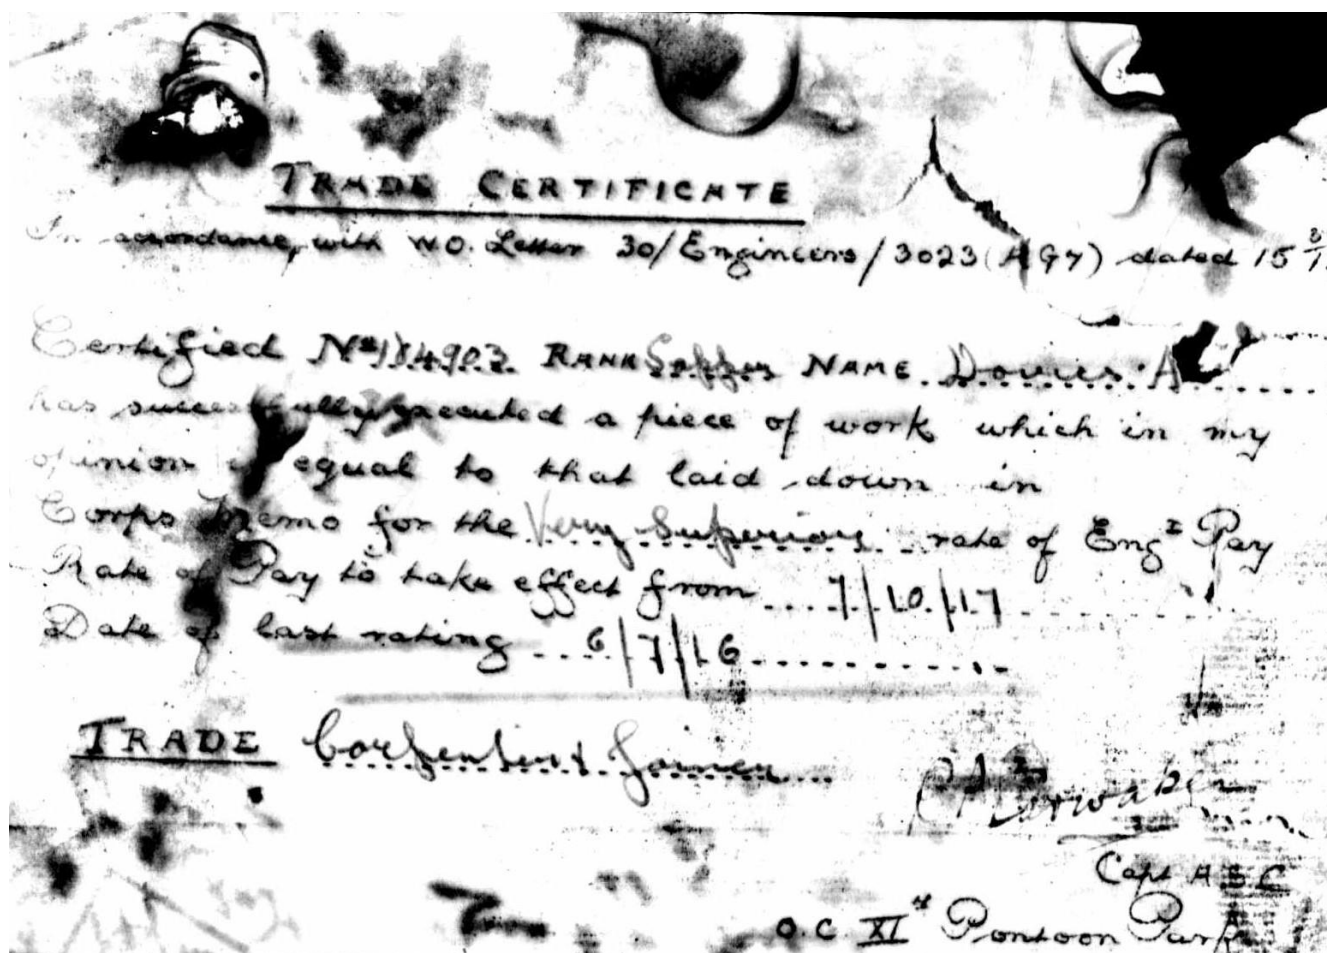 TRADE CERTIFICATE
In accordance with W.O. Letter 30/Engineers/3023 (AG7) dated 15
Certified No 184903 RANK Sapper NAME Davies A
has successfully executed a piece of work which in my
opinion is equal to that laid down in
Corps Memo for the Very Superior rate of Engr Pay
Rate of Pay to take effect from 7/10/17
Date of last rating 6/7/16
TRADE Carpenter & Joiner
Capt ASC
O.C. XIth Pontoon Park